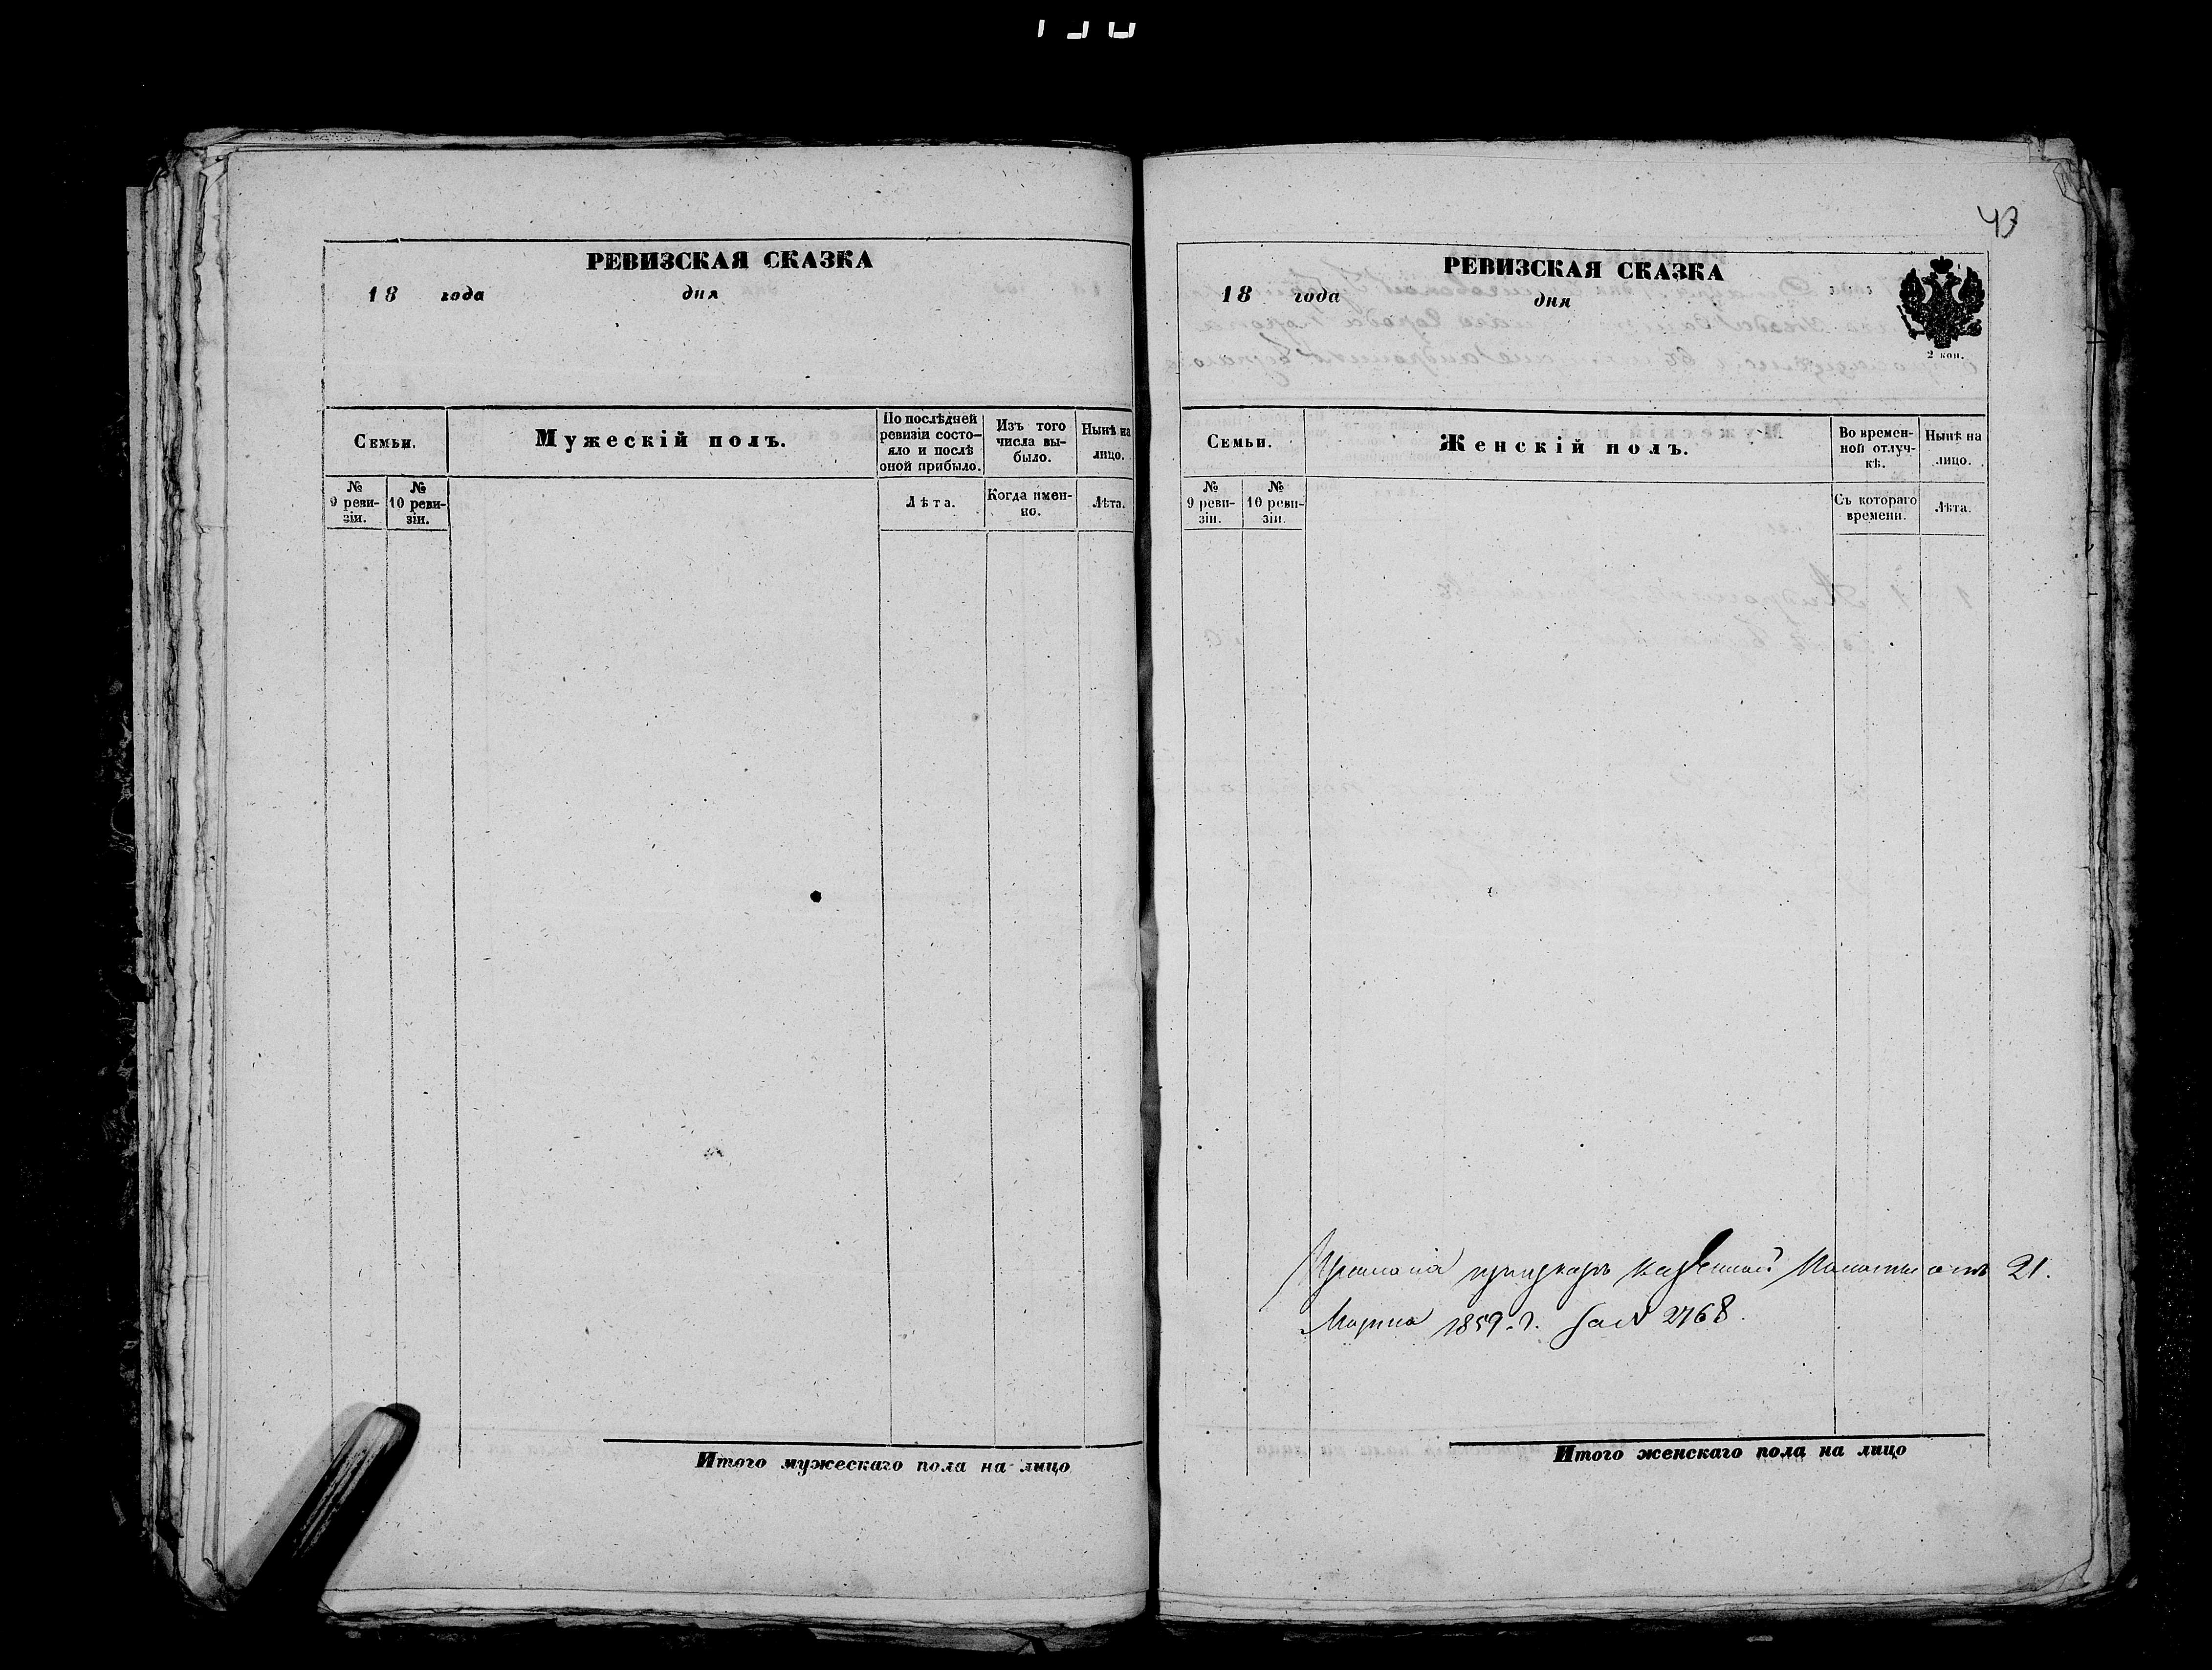 РЕВИЗСКАЯ СКАЗКА
18 года дня
Семьи.
Мужескій полъ.
По послѣдней ревизіи состо-
яло и послѣ
оной прибыло.
Изъ того
числа вы-
было.
Нынѣ на
лицо.
№
9 реви-
зіи.
№
10 реви-
зіи.
Лѣта.
Когда имен-
но.
Лѣта.
Итого мужескаго пола на лицо
43
РЕВИЗСКАЯ СКАЗКА
18 года дня
2 коп.
Семьи.
Женскій полъ.
Во времен-
ной отлуч-
кѣ.
Нынѣ на
лицо.
№
9 реви-
зіи.
№
10 реви-
зіи.
Съ котораго
времени.
Лѣта.
Казенной Палаты отъ 21.
Марта 1859. г. за № 2768.
Итого женскаго пола на лицо